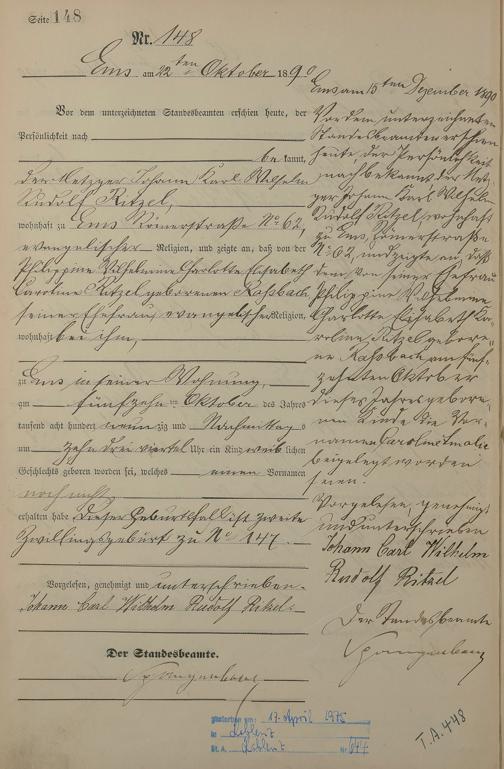 Seite 148
Nr. 148
Ems am 22ten Oktober 1890
Vor dem unterzeichneten Standesbeamten erschien heute, der
Persönlichkeit nach
bekannt,
der Metzger Johann Karl Wilhelm
Rudolf Ritzel,
wohnhaft zu Ems Römerstraße No 62,
evangelischer Religion, und zeigte an, daß von der
Philippine Wilhelmine Charlotte Elisabeth
Caroline Ritzel geborenen Kaßbach
seiner Ehefrau evangelischer Religion,
wohnhaft bei ihm,
zu Ems in seiner Wohnung,
am fünfzehnten Oktober des Jahres
tausend acht hundert neunzig und Nachmittags
um zehn drei viertel Uhr ein Kind weiblichen
Geschlechts geboren worden sei, welches einen Vornamen
noch nicht
erhalten habe. Dieser Geburtsfall ist zweite
Zwillingsgeburt zu No 147.
Vorgelesen, genehmigt und unterschrieben
Johann Carl Wilhelm Rudolf Ritzel.
Der Standesbeamte.
Spangenberg
Ems am 15ten Dezember 1890
Vor dem unterzeichneten
Standesbeamten erschien
heute der Persönlichkeit
nach bekannt der Metz-
ger Johann Karl Wilhelm
Rudolf Ritzel, wohnhaft
zu Ems, Römerstraße
No 62, und zeigte an, daß
dem von seiner Ehefrau
Philippine Wilhelmine
Charlotte Elisabeth Ca-
roline Ritzel gebore-
ne Kaßbach am fünf-
zehnten Oktober
dieses Jahres gebore-
nen Kinde die Vor-
namen Caroline Amalie
beigelegt worden
seien.
Vorgelesen, genehmigt
und unterschrieben
Johann Carl Wilhelm
Rudolf Ritzel
Der Standesbeamte
Spangenberg
gestorben am: 17. April 1975
in Koblenz
St. A. Koblenz Nr. 644
T.A. 448